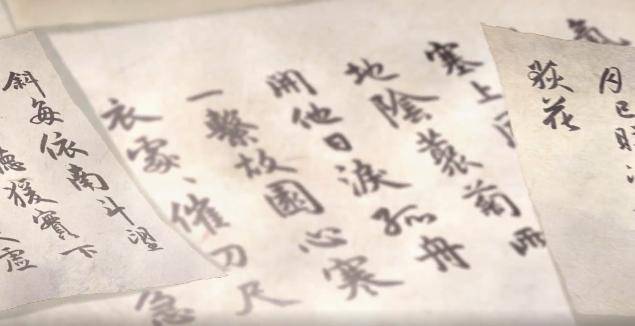 月已映
荻花
氣
塞上风
地陰叢菊兩
開他日淚孤舟
一繫故園心寒
衣處、催刀尺
急
斜每依南斗望
聽猿實下
虛